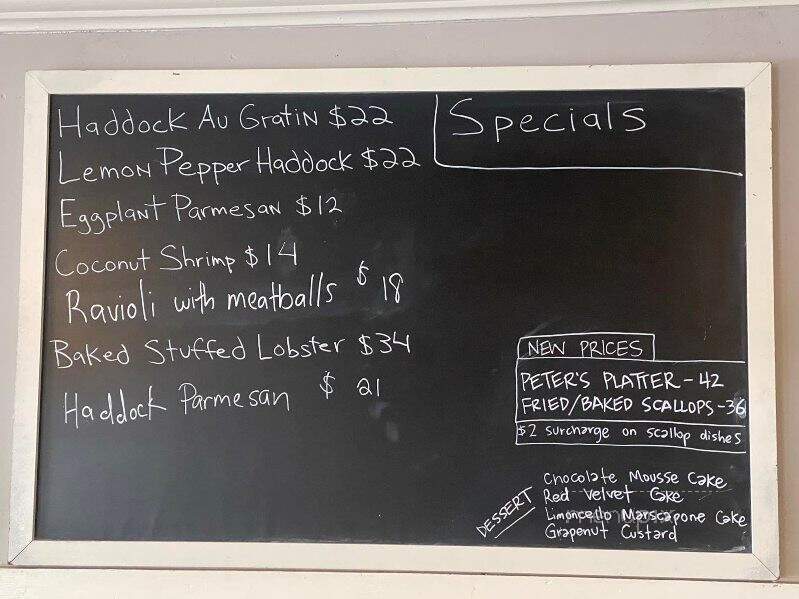 Haddock Au Gratin $22
Lemon Pepper Haddock $22
Eggplant Parmesan $12
Coconut Shrimp $14
Ravioli with meatballs $18
Baked Stuffed Lobster $34
Haddock Parmesan $21
Specials
NEW PRICES
PETER'S PLATTER - 42
FRIED/BAKED SCALLOPS - 36
$2 surcharge on scallop dishes
DESSERT
Chocolate Mousse Cake
Red Velvet Cake
Limoncello Marscapone Cake
Grapenut Custard